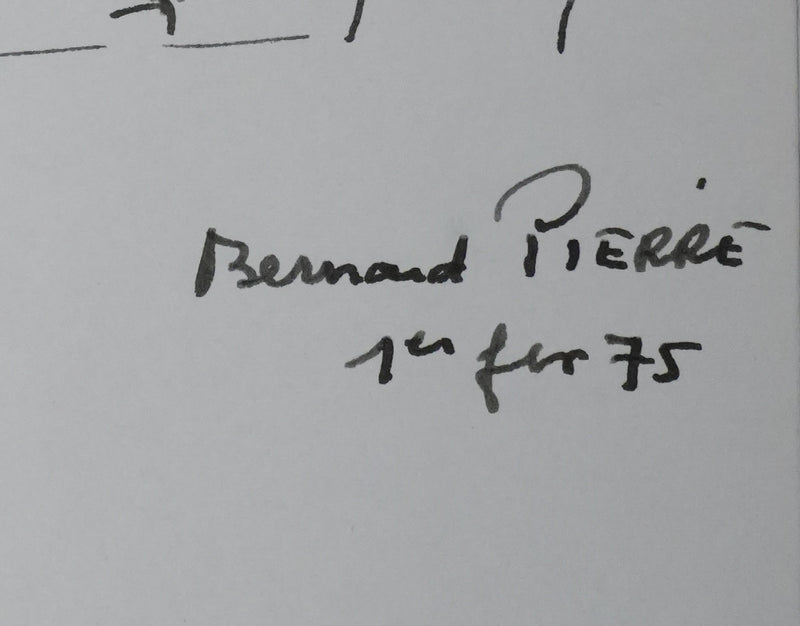 Bernard PIERRE
1er fev 75